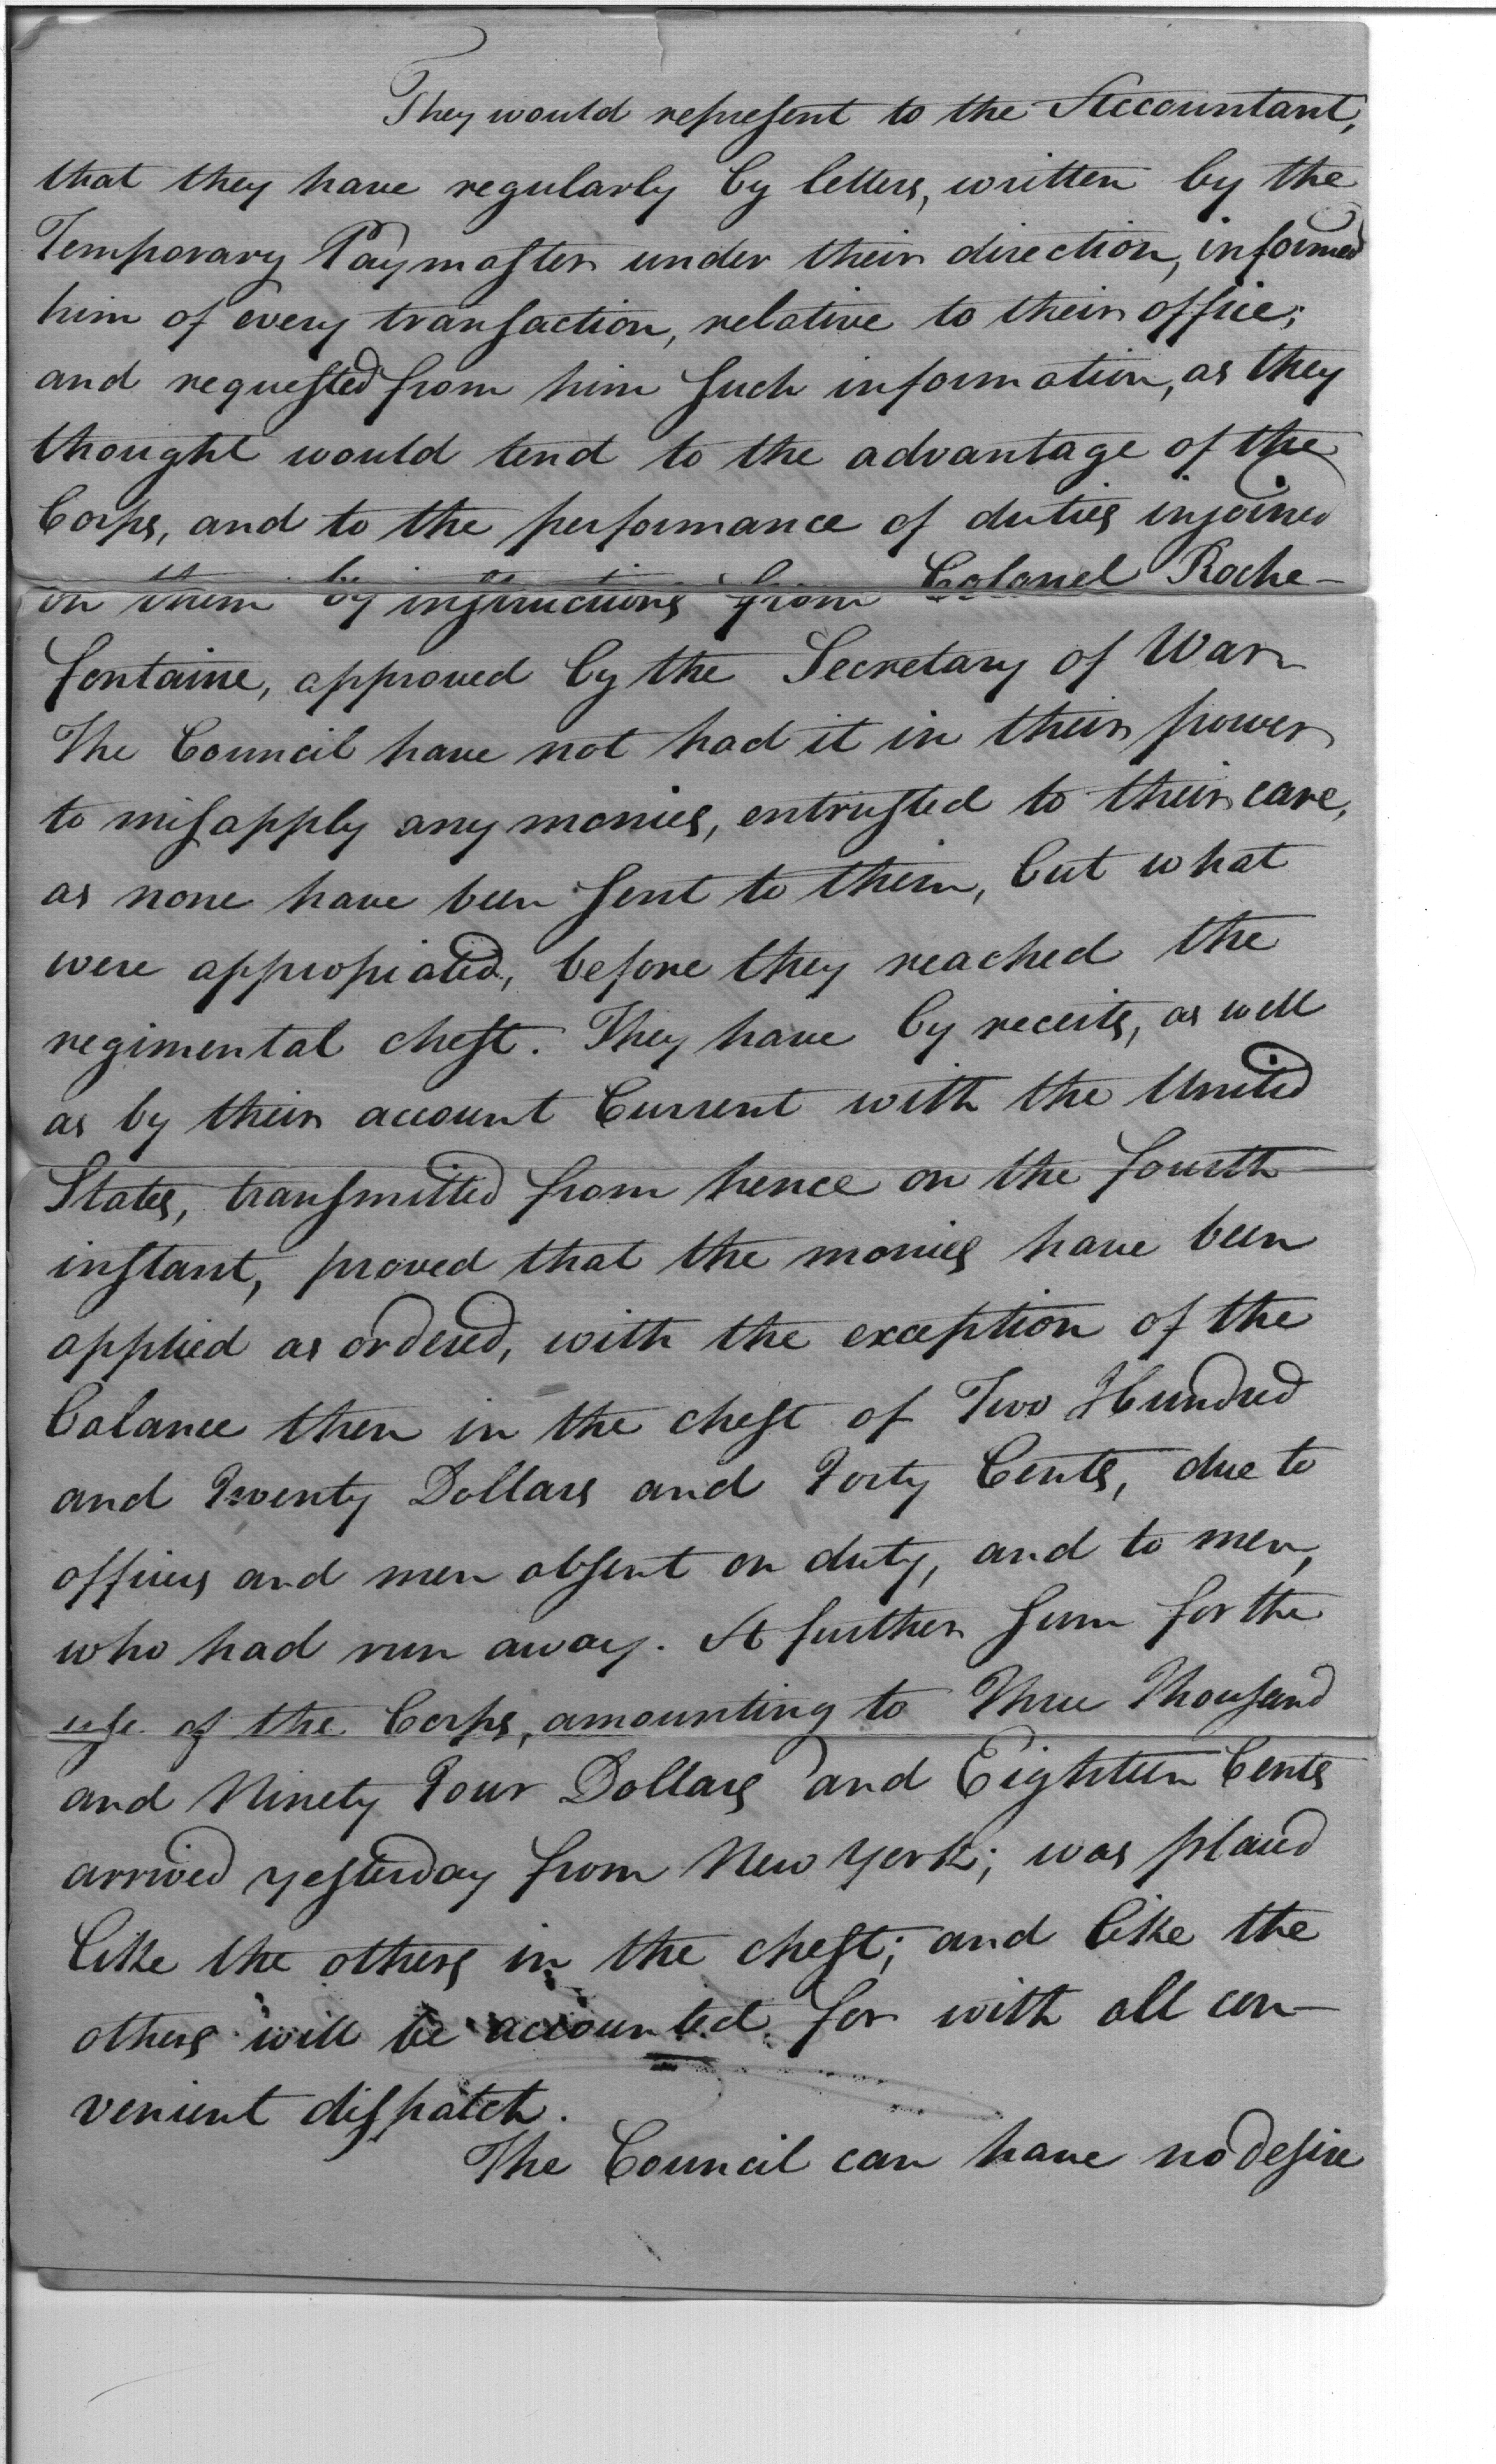 They would represent to the Accountant,
that they have regularly by letters, written by the
Temporary Paymaster under their direction, informed
him of every transaction, relative to their office;
and requested from him such information, as they
thought would tend to the advantage of the
Corps, and to the performance of duties injoined
on them by instructions from Colonel Roche-
fontaine, approved by the Secretary of War
The Council have not had it in their power
to misapply any monies, entrusted to their care,
as none have been sent to them, but what
were appropiated, before they reached the
regimental chest. They have by receits, as well
as by their account Current with the United
States, transmitted from hence on the fourth
instant, proved that the monies have been
applied as ordered, with the exception of the
balance then in the chest of Two Hundred
and Twenty Dollars and Forty Cents, due to
officers and men absent on duty, and to men,
who had run away. A further sum for the
use of the Corps, amounting to Three Thousand
and Ninety Four Dollars and Eighteen Cents
arrived yesterday from New York; was placed
like the others in the chest; and like the
others will be accounted for with all con-
venient dispatch.
The Council can have no desire